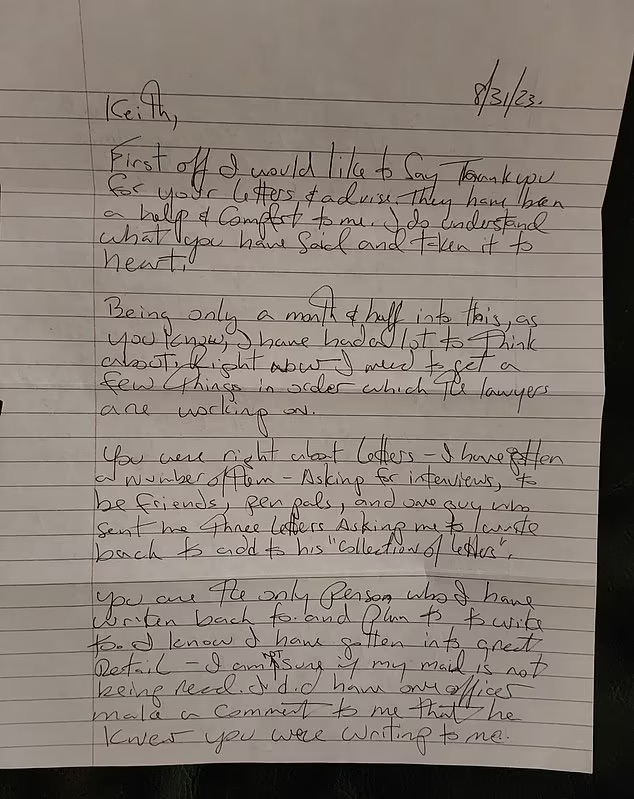 8/31/23.
Keith,
First off I would like to Say Thank you
for your letters & advise. They have been
a help & Comfort to me. I do understand
what you have Said and taken it to
heart.
Being only a month & half into this, as
you know, I have had a lot to Think
about. Right now I need to get a
few things in order which The lawyers
are working on.
You were right about letters - I have gotten
a number of Them - Asking for interviews, to
be friends, pen pals, and one guy who
sent me three letters Asking me to write
back to add to his "Collection of letters".
You are The only Person who I have
written back to. and Plan to to write
to. I know I have gotten into great
Detail - I am NOT sure if my mail is not
being read. I did have one officer
make a comment to me that he
knew you were writing to me.